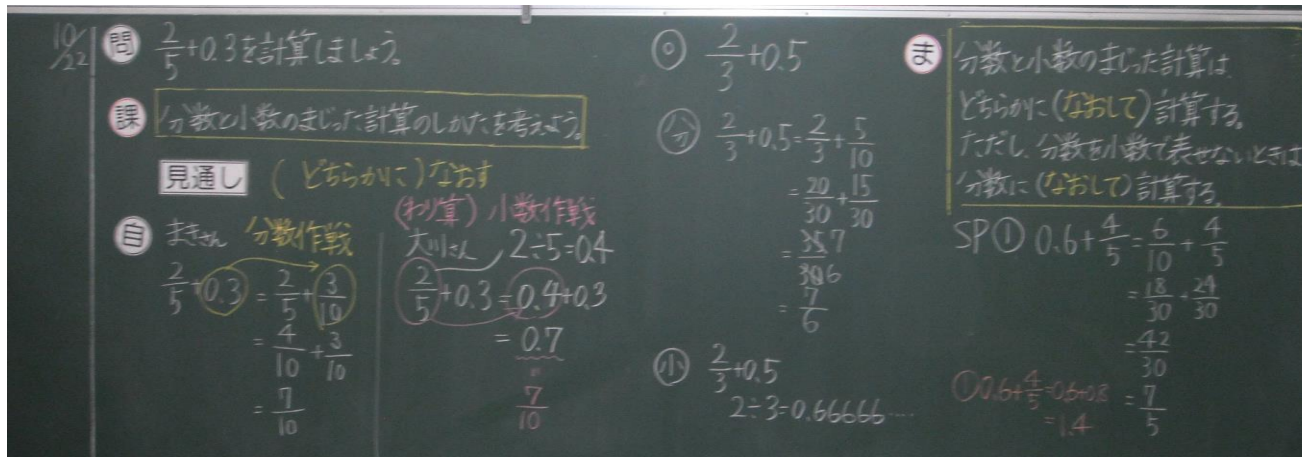 10/22
問 2/5+0.3を計算しましょう。
課 分数と小数のまじった計算のしかたを考えよう。
見通し (どちらかに)なおす
自 まきさん 分数作戦
2/5+0.3=2/5+3/10
=4/10+3/10
=7/10
(わり算) 小数作戦
大川さん 2÷5=0.4
2/5+0.3=0.4+0.3
=0.7
7/10
◎ 2/3+0.5
分 2/3+0.5=2/3+5/10
=20/30+15/30
=35/30 7/6
=7/6
小 2/3+0.5
2÷3=0.66666....
ま 分数と小数のまじった計算は、
どちらかに(なおして)計算する。
ただし、分数を小数で表せないときは
分数に(なおして)計算する。
SP① 0.6+4/5=6/10+4/5
=18/30+24/30
=42/30
=7/5
①0.6+4/5=0.6+0.8
=1.4